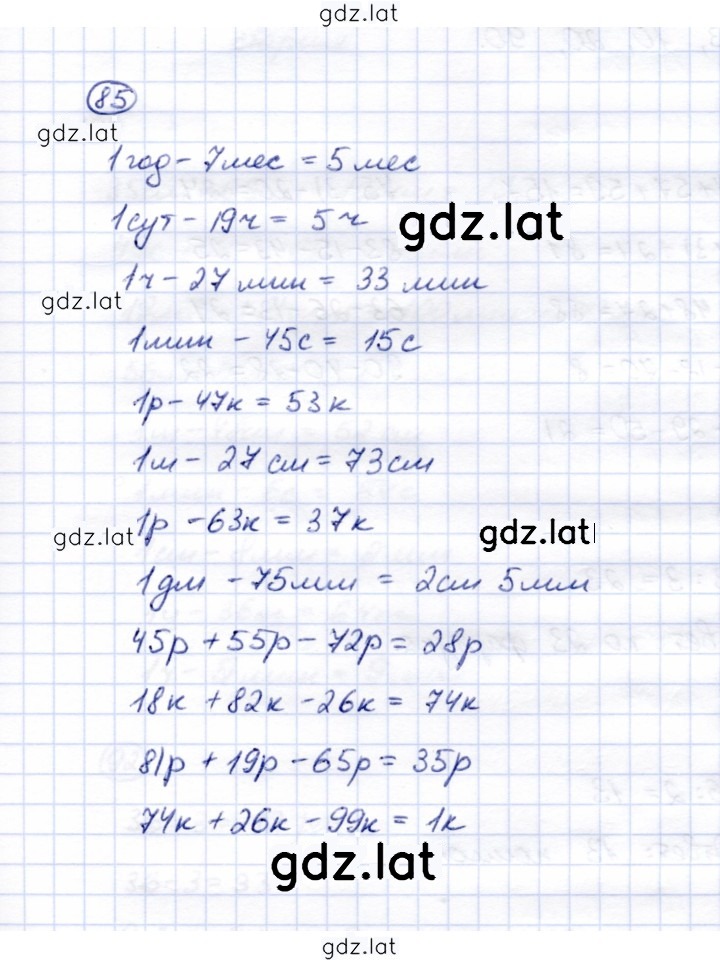 gdz.lat
85
gdz.lat
1год - 7мес = 5мес
1сут - 19ч = 5ч
gdz.lat
1ч - 27мин = 33мин
gdz.lat
1мин - 45с = 15с
1р - 47к = 53к
1м - 27см = 73см
1р - 63к = 37к
gdz.lat
gdz.lat
1дм - 75мм = 2см 5мм
45р + 55р - 72р = 28р
18к + 82к - 26к = 74к
81р + 19р - 65р = 35р
74к + 26к - 99к = 1к
gdz.lat
gdz.lat